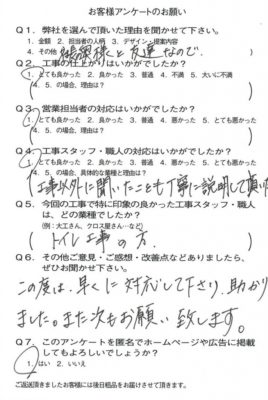 お客様アンケートのお願い
Q1．弊社を選んで頂いた理由を聞かせて下さい。
1. 金額 2. 担当者の人柄 3. デザイン・提案内容
4. その他 様と友達なので.
Q2．工事の仕上がりはいかがでしたか？
1. とても良かった 2. 良かった 3. 普通 4. 不満 5. 大いに不満
4、5、の場合、理由は？
Q3．営業担当者の対応はいかがでしたか？
1. とても良かった 2. 良かった 3. 普通 4. 悪かった 5. とても悪かった
4、5、の場合、理由は？
Q4．工事スタッフ・職人の対応はいかがでしたか？
1. とても良かった 2. 良かった 3. 普通 4. 悪かった 5. とても悪かった
4、5、の場合、具体的な業種と理由は？
工事以外に聞いたことも丁寧に説明して頂い
Q5．今回の工事で特に印象の良かった工事スタッフ・職人
は、どの業種でしたか？
(例：大工さん、クロス屋さん…など)
トイレ工事の方.
Q6．その他ご意見・ご感想・改善点などありましたら、
ぜひお聞かせ下さい。
この度は、早くに対応して下さり、助かり
ました。また次もお願い致します。
Q7．このアンケートを匿名でホームページや広告に掲載
してもよろしいでしょうか？
1. はい 2. いいえ
ご返送頂きましたお客様には後日粗品をお届けさせて頂きます。